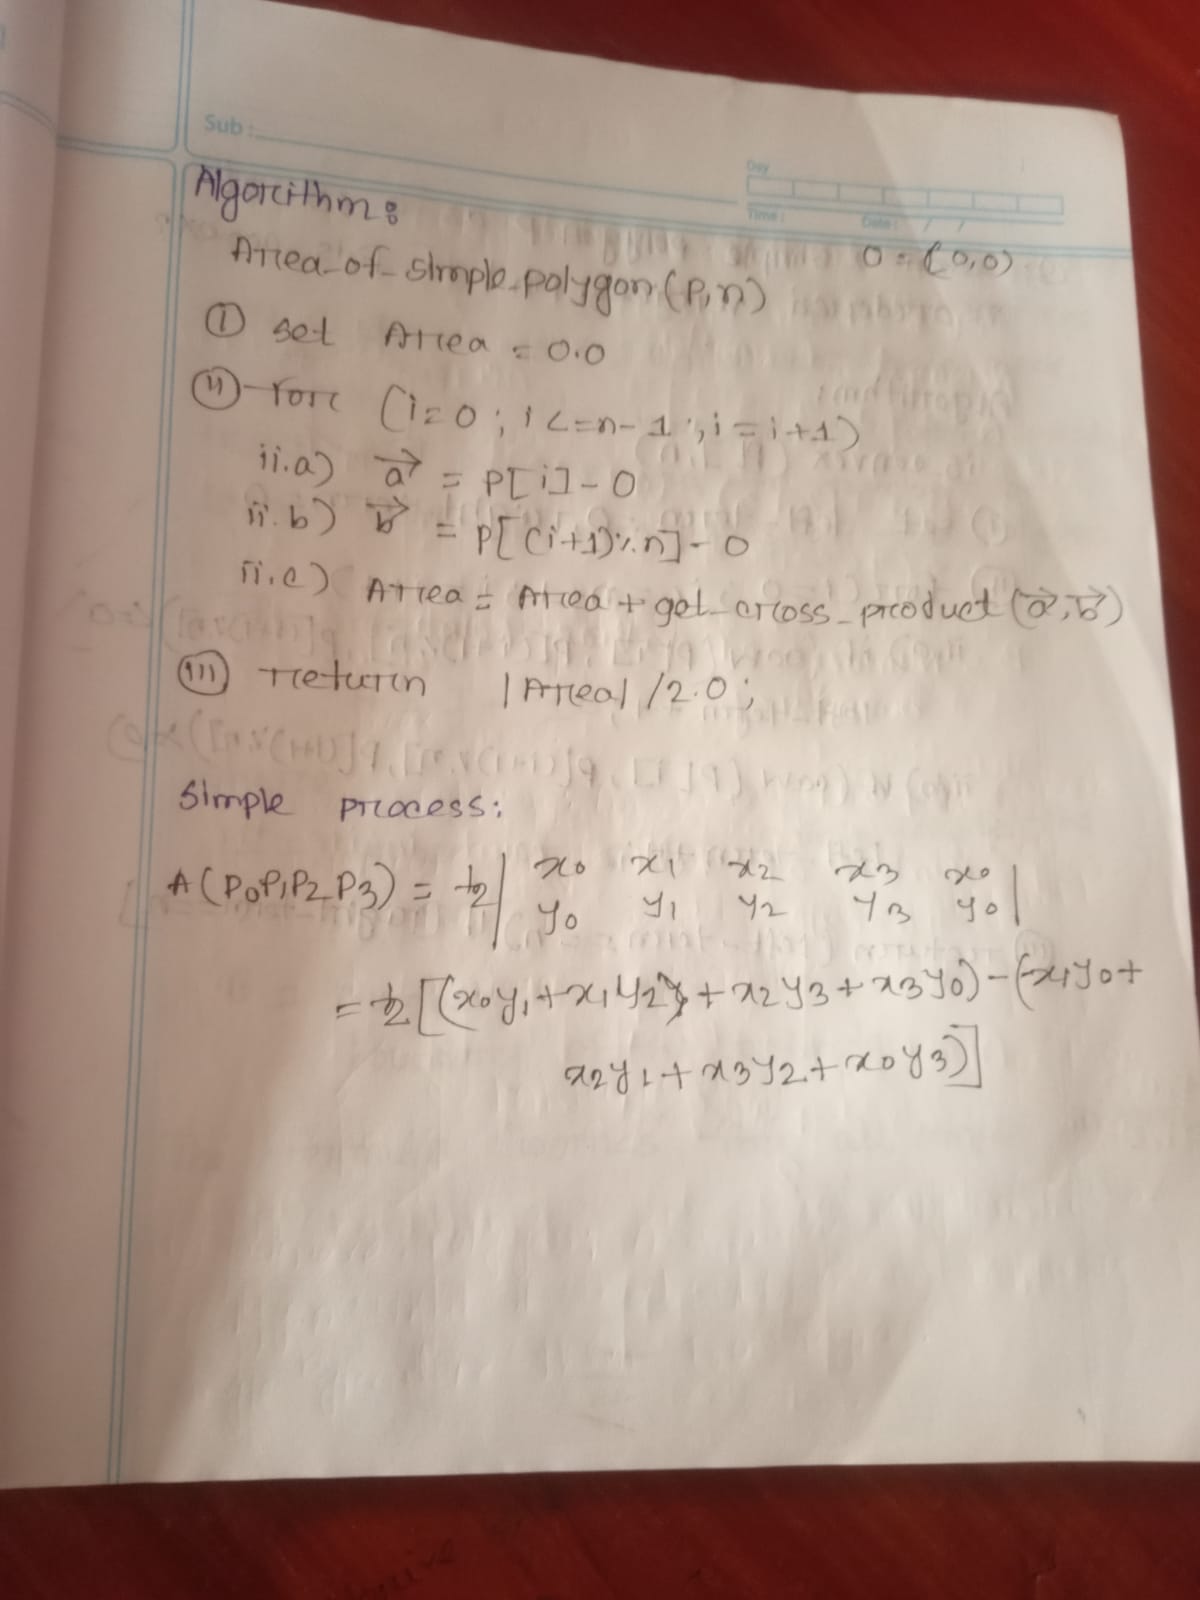 Sub:
Day
Time:
Date: / /
Algorithm:
O = (0,0)
Area_of_simple_polygon(P,n)
(i) set Area = 0.0
(ii) for (i=0; i<=n-1; i=i+1)
ii.a) a→ = P[i]-O
ii.b) b→ = P[(i+1)%n]-O
ii.c) Area = Area + get_cross_product(a→,b→)
(iii) return |Area|/2.0;
Simple process:
A(P₀P₁P₂P₃) = ½| x₀ x₁ x₂ x₃ x₀ |
y₀ y₁ y₂ y₃ y₀
= ½[(x₀y₁+x₁y₂+x₂y₃+x₃y₀)-(x₁y₀+
x₂y₁+x₃y₂+x₀y₃)]